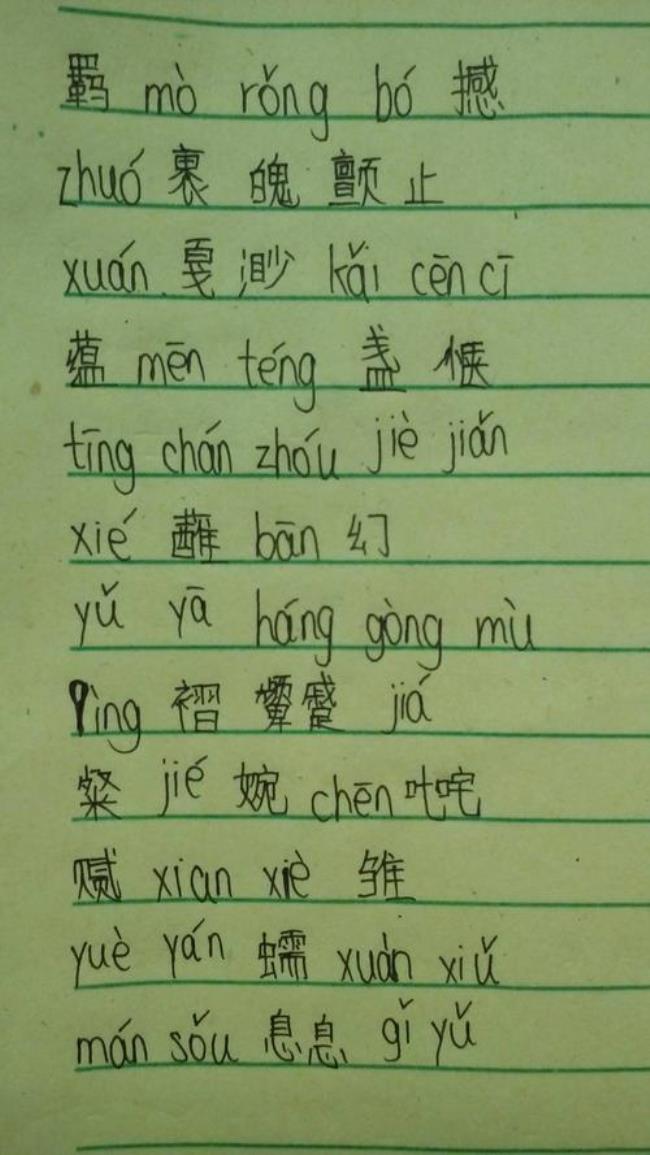 羁 mò rǒng bó 撼
zhuó 裹 魄 颤 止
xuán 戛 渺 kǎi cēn cī
蕴 mēn téng 盏 惬
tīng chán zhóu jiè jiǎn
xié 蘸 bān 幻
yǔ yā háng gòng mù
pìng 褶 颦蹙 jiá
粲 jié 婉 chēn 叱咤
赃 xian xiè 雏
yuè yán 蠕 xuàn xiǔ
mán sǒu 息息 gǐ yǔ